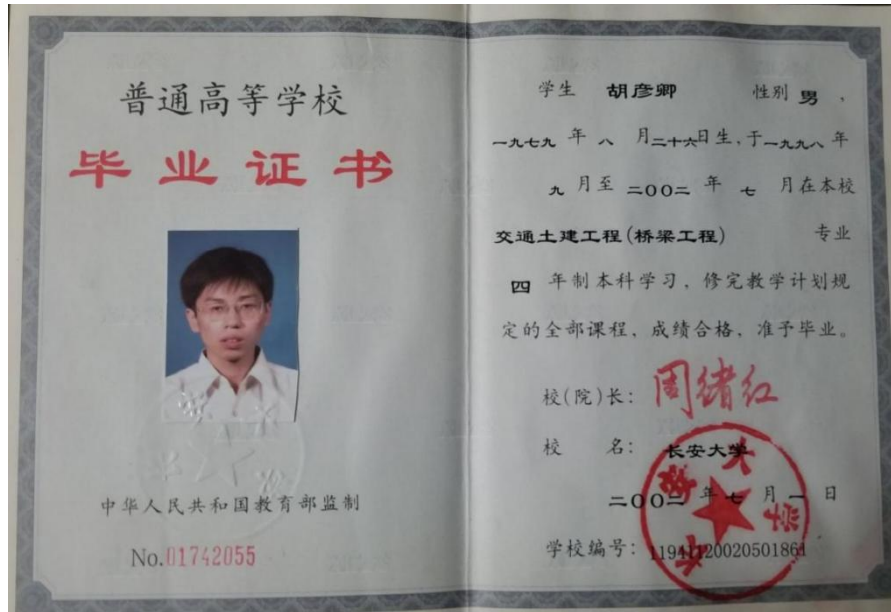 普通高等学校
毕业证书
中华人民共和国教育部监制
No.01742055
学生 胡彦卿 性别 男，
一九七九 年 八 月二十六日生，于一九九八年
九 月至 二〇〇二 年 七 月在本校
交通土建工程(桥梁工程) 专业
四 年制本科学习，修完教学计划规
定的全部课程，成绩合格，准予毕业。
校(院)长： 周绪红
校 名： 长安大学
二〇〇二 年 七 月 一 日
学校编号：11941120020501861